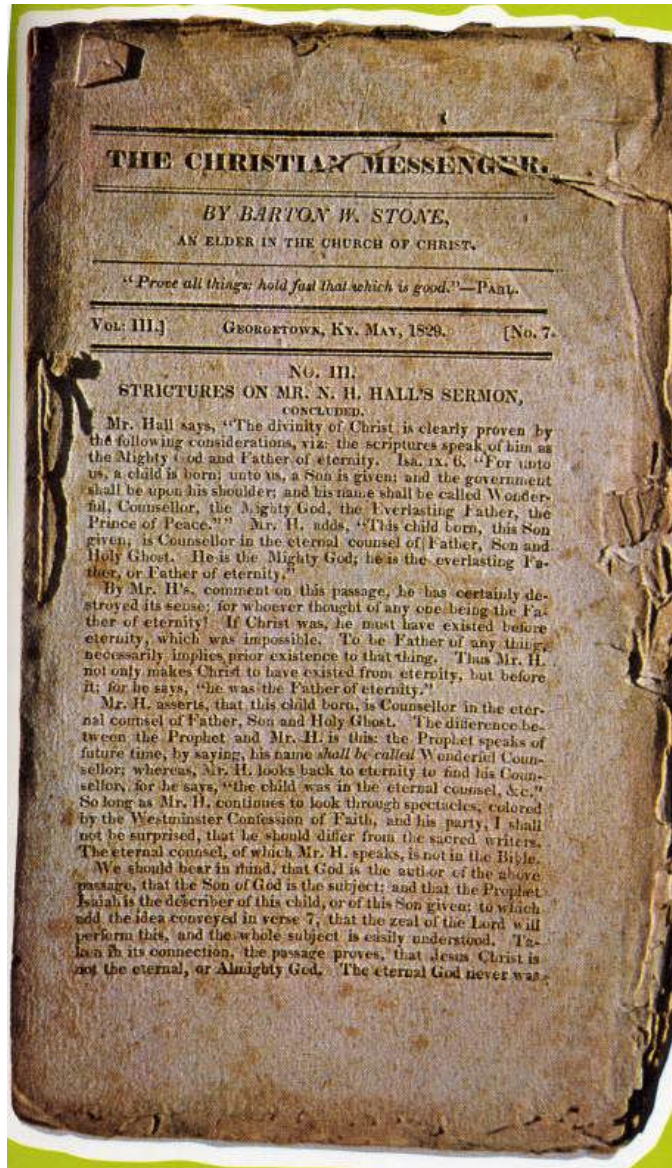 THE CHRISTIAN MESSENGER.
BY BARTON W. STONE,
AN ELDER IN THE CHURCH OF CHRIST.
"Prove all things: hold fast that which is good."—PAUL.
VOL: III.] GEORGETOWN, KY. MAY, 1829. [NO. 7.
NO. III.
STRICTURES ON MR. N. H. HALL'S SERMON,
CONCLUDED.
Mr. Hall says, "The divinity of Christ is clearly proven by
the following considerations, viz: the scriptures speak of him as
the Mighty God and Father of eternity. Isa. ix. 6, "For unto
us, a child is born; unto us, a Son is given; and the government
shall be upon his shoulder; and his name shall be called Wonder-
ful, Counsellor, the Mighty God, the Everlasting Father, the
Prince of Peace."" Mr. H. adds, "This child born, this Son
given, is Counsellor in the eternal counsel of Father, Son and
Holy Ghost. He is the Mighty God; he is the everlasting Fa-
ther, or Father of eternity."
By Mr. H's. comment on this passage, he has certainly de-
stroyed its sense; for whoever thought of any one being the Fa-
ther of eternity! If Christ was, he must have existed before
eternity, which was impossible. To be Father of any thing,
necessarily implies prior existence to that thing. Thus Mr. H.
not only makes Christ to have existed from eternity, but before
it; for he says, "he was the Father of eternity."
Mr. H. asserts, that this child born, is Counsellor in the eter-
nal counsel of Father, Son and Holy Ghost. The difference be-
tween the Prophet and Mr. H. is this: the Prophet speaks of
future time, by saying, his name shall be called Wonderful Coun-
sellor; whereas, Mr. H. looks back to eternity to find his Coun-
sellor, for he says, "the child was in the eternal counsel, &c."
So long as Mr. H. continues to look through spectacles, colored
by the Westminster Confession of Faith, and his party, I shall
not be surprised, that he should differ from the sacred writers.
The eternal counsel, of which Mr. H. speaks, is not in the Bible.
We should bear in mind, that God is the author of the above
passage, that the Son of God is the subject; and that the Prophet
Isaiah is the describer of this child, or of this Son given; to which
add the idea conveyed in verse 7, that the zeal of the Lord will
perform this, and the whole subject is easily understood. Ta-
ken in its connection, the passage proves, that Jesus Christ is
not the eternal, or Almighty God. The eternal God never was